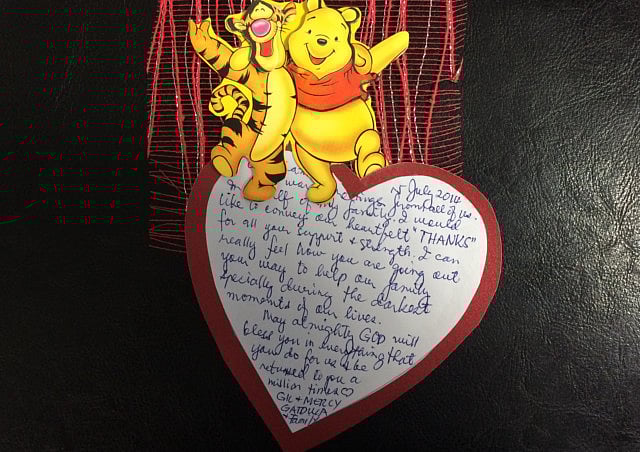 warm greetings from all of us. 15 July 2014
of my family, I would
like to convey our heartfelt "THANKS"
for all your support & strength. I can
really feel how you are going out
your way to help our family
specially during the darkest
moments of our lives.
May almighty GOD will
bless you in everything that
you do for us & be
returned to you a
million times ♡
GIL & MERCY
GATDULA
& Family